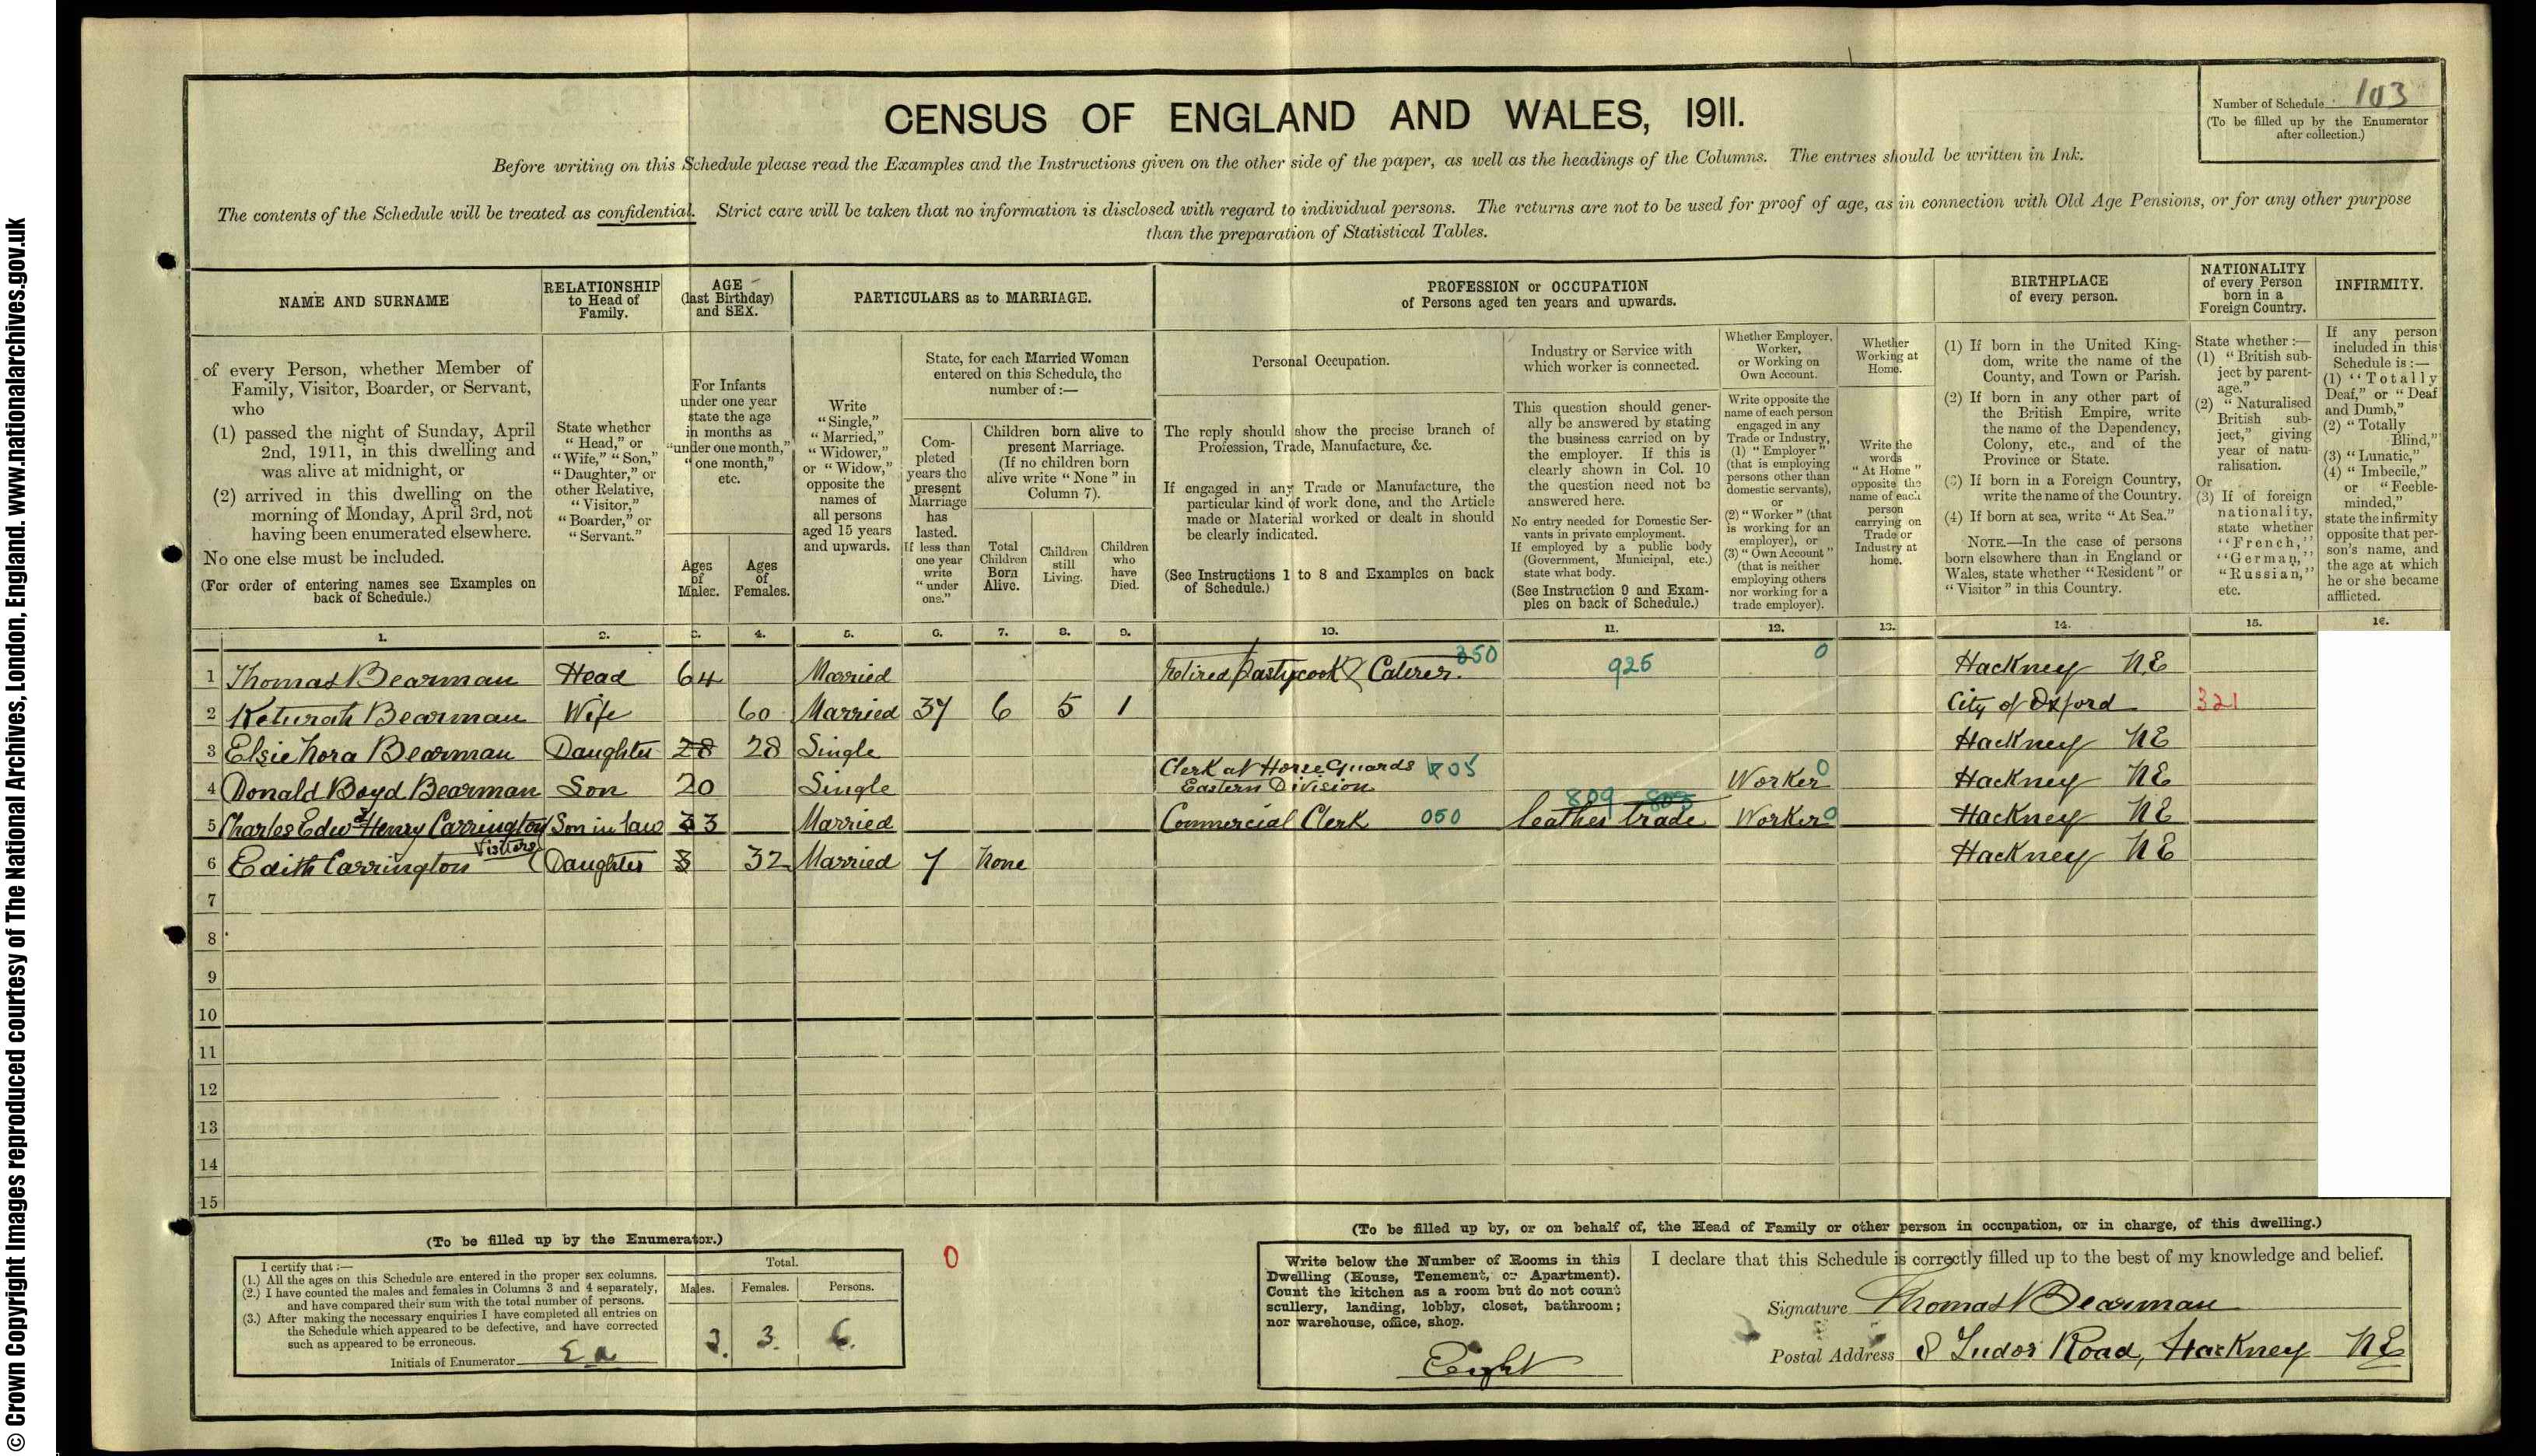 © Crown Copyright Images reproduced courtesy of The National Archives, London, England. www.nationalarchives.gov.uk
CENSUS OF ENGLAND AND WALES, 1911.
Number of Schedule 103
(To be filled up by the Enumerator
after collection.)
Before writing on this Schedule please read the Examples and the Instructions given on the other side of the paper, as well as the headings of the Columns. The entries should be written in Ink.
The contents of the Schedule will be treated as confidential. Strict care will be taken that no information is disclosed with regard to individual persons. The returns are not to be used for proof of age, as in connection with Old Age Pensions, or for any other purpose
than the preparation of Statistical Tables.
NAME AND SURNAME
of every Person, whether Member of
Family, Visitor, Boarder, or Servant,
who
(1) passed the night of Sunday, April
2nd, 1911, in this dwelling and
was alive at midnight, or
(2) arrived in this dwelling on the
morning of Monday, April 3rd, not
having been enumerated elsewhere.
No one else must be included.
(For order of entering names see Examples on
back of Schedule.)
RELATIONSHIP
to Head of
Family.
State whether
"Head," or
"Wife," "Son,"
"Daughter," or
other Relative,
"Visitor,"
"Boarder," or
"Servant."
AGE
(last Birthday)
and SEX.
For Infants
under one year
state the age
in months as
"under one month,"
"one month,"
etc.
Ages
of
Males.
Ages
of
Females.
PARTICULARS as to MARRIAGE.
Write
"Single,"
"Married,"
"Widower,"
or "Widow,"
opposite the
names of
all persons
aged 15 years
and upwards.
State, for each Married Woman
entered on this Schedule, the
number of:—
Com-
pleted
years the
present
Marriage
has
lasted.
If less than
one year
write
"under
one."
Children born alive to
present Marriage.
(If no children born
alive write "None" in
Column 7).
Total
Children
Born
Alive.
Children
still
Living.
Children
who
have
Died.
PROFESSION or OCCUPATION
of Persons aged ten years and upwards.
Personal Occupation.
The reply should show the precise branch of
Profession, Trade, Manufacture, &c.
If engaged in any Trade or Manufacture, the
particular kind of work done, and the Article
made or Material worked or dealt in should
be clearly indicated.
(See Instructions 1 to 8 and Examples on back
of Schedule.)
Industry or Service with
which worker is connected.
This question should gener-
ally be answered by stating
the business carried on by
the employer. If this is
clearly shown in Col. 10
the question need not be
answered here.
No entry needed for Domestic Ser-
vants in private employment.
If employed by a public body
(Government, Municipal, etc.)
state what body.
(See Instruction 9 and Exam-
ples on back of Schedule.)
Whether Employer,
Worker,
or Working on
Own Account.
Write opposite the
name of each person
engaged in any
Trade or Industry,
(1) "Employer"
(that is employing
persons other than
domestic servants),
or
(2) "Worker" (that
is working for an
employer), or
(3) "Own Account"
(that is neither
employing others
nor working for a
trade employer).
Whether
Working at
Home.
Write the
words
"At Home"
opposite the
name of each
person
carrying on
Trade or
Industry at
home.
BIRTHPLACE
of every person.
(1) If born in the United King-
dom, write the name of the
County, and Town or Parish.
(2) If born in any other part of
the British Empire, write
the name of the Dependency,
Colony, etc., and of the
Province or State.
(3) If born in a Foreign Country,
write the name of the Country.
(4) If born at sea, write "At Sea."
NOTE.—In the case of persons
born elsewhere than in England or
Wales, state whether "Resident" or
"Visitor" in this Country.
NATIONALITY
of every Person
born in a
Foreign Country.
State whether:—
(1) "British sub-
ject by parent-
age."
(2) "Naturalised
British sub-
ject," giving
year of natu-
ralisation.
Or
(3) If of foreign
nationality,
state whether
"French,"
"German,"
"Russian,"
etc.
INFIRMITY.
If any person
included in this
Schedule is:—
(1) "Totally
Deaf," or "Deaf
and Dumb,"
(2) "Totally
Blind,"
(3) "Lunatic,"
(4) "Imbecile,"
or "Feeble-
minded,"
state the infirmity
opposite that per-
son's name, and
the age at which
he or she became
afflicted.
1. 2. 3. 4. 5. 6. 7. 8. 9. 10. 11. 12. 13. 14. 15. 16.
1 Thomas Bearman Head 64 Married Retired Pastrycook & Caterer. 350 925 0 Hackney N.E
2 Keturah Bearman Wife 60 Married 37 6 5 1 City of Oxford 321
3 Elsie Nora Bearman Daughter 28 28 Single Hackney NE
4 Donald Boyd Bearman Son 20 Single Clerk at Horse Guards Eastern Division 05 Worker 0 Hackney NE
5 Charles Edwd Henry Carrington Son in law 33 Married Commercial Clerk 050 leather trade 809 Worker 0 Hackney NE
6 Edith Carrington Visitors Daughter 3 32 Married 7 None Hackney NE
7
8
9
10
11
12
13
14
15
(To be filled up by the Enumerator.)
I certify that:—
(1.) All the ages on this Schedule are entered in the proper sex columns.
(2.) I have counted the males and females in Columns 3 and 4 separately,
and have compared their sum with the total number of persons.
(3.) After making the necessary enquiries I have completed all entries on
the Schedule which appeared to be defective, and have corrected
such as appeared to be erroneous.
Initials of Enumerator
Total.
Males. Females. Persons.
3. 3. 6.
0
(To be filled up by, or on behalf of, the Head of Family or other person in occupation, or in charge, of this dwelling.)
Write below the Number of Rooms in this
Dwelling (House, Tenement, or Apartment).
Count the kitchen as a room but do not count
scullery, landing, lobby, closet, bathroom;
nor warehouse, office, shop.
Eight
I declare that this Schedule is correctly filled up to the best of my knowledge and belief.
Signature Thomas Bearman
Postal Address 8 Tudor Road, Hackney NE